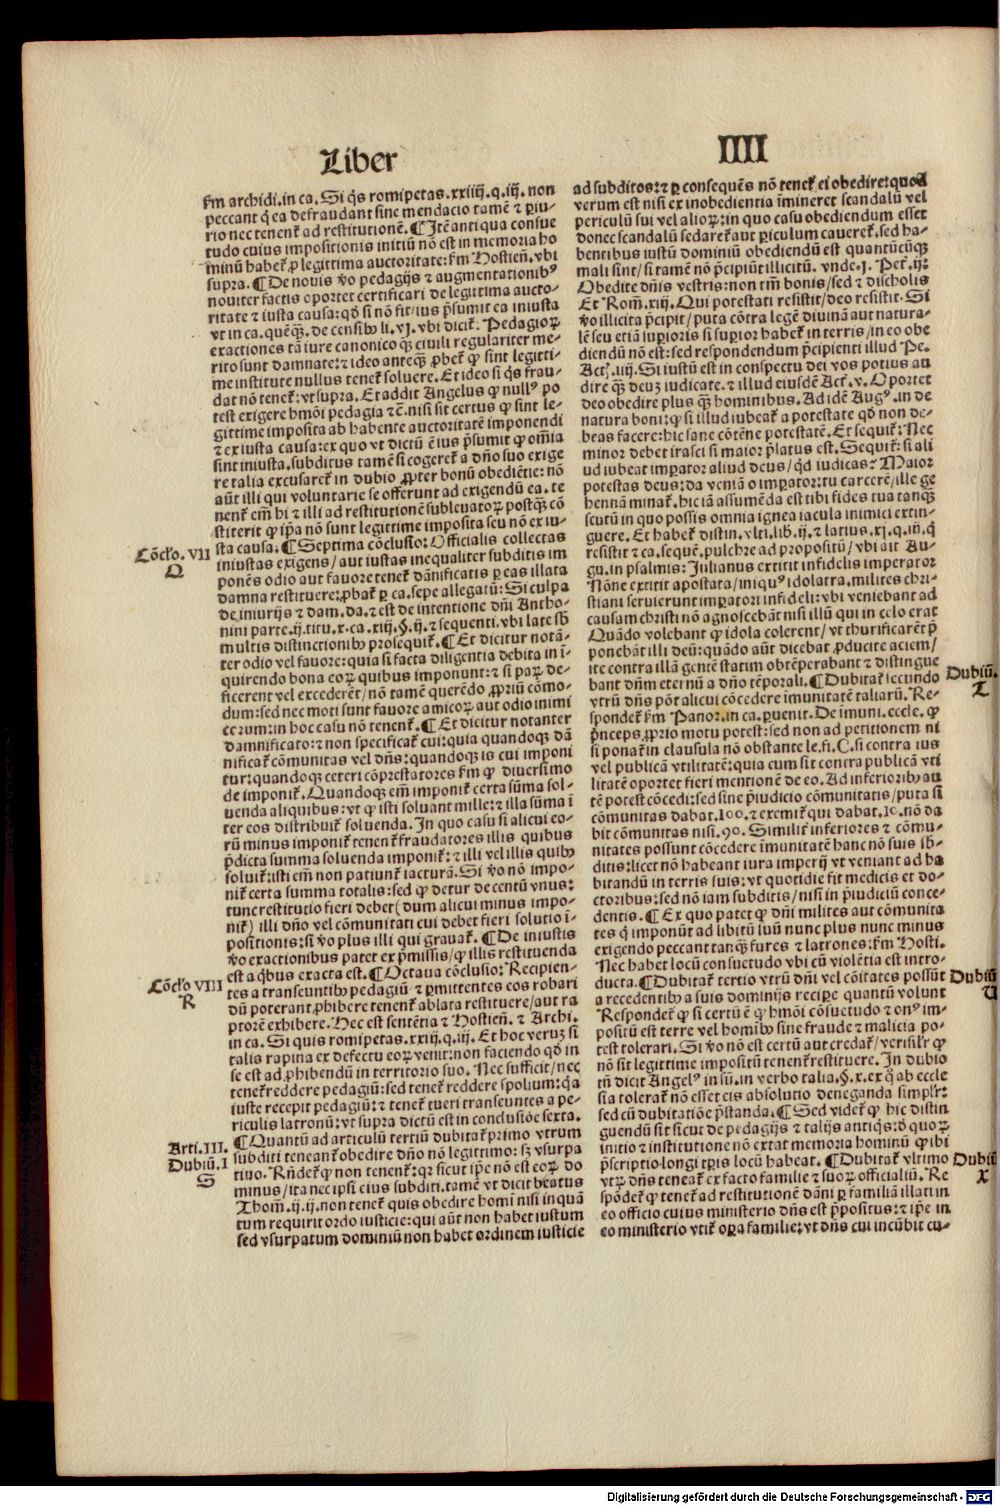 Liber
IIII
ẜm archidi. in ca. Si q̄s romipetas. xxiiij. q. iij. non
peccant q̇ ea defraudant sine mendacio tamē ⁊ ꝑiu-
rio nec tenenť ad restitutionē. ¶ Itē antiqua consue
tudo cuius impositionis initiū nō est in memoria ho
minū habeť ꝓ legittima auctoritate: ẜm Hostien̄. vbi
supra. ¶ De nouis v̄o pedagijs ⁊ augmentationibꝰ
nouiter factis oportet certificari de legittima aucto-
ritate ⁊ iusta causa: qd̄ si nō fit/ ius p̄sumit ea iniusta
vt in ca. quēqꝫ. de censibꝫ li. vj. vbi diciť. Pedagioꝝ
exactiones tā iure canonico qꝫ ciuili regulariter me-
rito sunt damnate: ⁊ ideo anteqꝫ ꝓbeť ꝙ sint legitti-
me institute nullus teneť soluere. Et ideo si q̄s frau-
dat nō teneť: vt supra. Et addit Angelus ꝙ nullꝰ po
test exigere hmōi pedagia ⁊ c̄. nisi sit certus ꝙ sint le-
gittime imposita ab habente auctoritatē imponendi
⁊ ex iusta causa: ex quo vt dictū ē ius p̄sumit ꝙ om̄ia
sint iniusta. subditus tamē si cogereť a dn̄o suo exige
re talia excusareť in dubio ꝓpter bonū obediētie: nō
aūt illi qui voluntarie se offerunt ad exigendū ea. te
nenť em̄ hi ⁊ illi ad restitutionē subleuatoꝝ postqꝫ cō
stiterit ꝙ ip̄a nō sunt legittime imposita seu nō ex iu-
sta causa. ¶ Septima cōclusio: Officialis collectas
iniustas exigens/ aut iustas inequaliter subditis im
ponēs odio aut fauore teneť dānificatis ꝑ eas illata
damna restituere: ꝓbať ꝑ ca. sepe allegatū: Si culpa
de iniurijs ⁊ dam. da. ⁊ est de intentione dn̄i Antho-
nini parte. ij. titu. x. ca. xiij. §. ij. ⁊ sequenti. vbi late sb̄
multis distinctionibꝫ prosequiť. ¶ Et dicitur notā-
ter odio vel fauore: quia si facta diligentia debita in ī-
quirendo bona eoꝝ quibus imponunt: ⁊ si paꝝ de-
ficerent vel excederēt/ nō tamē querēdo ꝓpriū cōmo-
dum: sed nec moti sunt fauore amicoꝝ aut odio inimi
corum: in hoc casu nō tenenť. ¶ Et dicitur notanter
damnificato: ⁊ non specificať cui: quia quandoqꝫ dā
nificať cōmunitas vel dn̄s: quandoqꝫ is cui imponi
tur: quandoqꝫ ceteri cōp̄estatores ẜm ꝙ diuersimo
de imponiť. Quandoqꝫ em̄ imponiť certa sūma sol-
uenda aliquibus: vt ꝙ isti soluant mille: ⁊ illa sūma ī
ter eos distribuiť soluenda. In quo casu si alicui eo-
rū minus imponiť tenenť fraudatores illis quibus
p̄dicta summa soluenda imponiť: ⁊ illi vel illis quibꝫ
soluiť: isti em̄ non patiunť iacturā. Si v̄o nō impo-
niť certa summa totalis: sed ꝙ detur de centū vnus:
tunc restitutio fieri debet (dum alicui minus impo-
niť) illi dn̄o vel cōmunitati cui debet fieri solutio ī-
positionis: si v̄o plus illi qui grauať. ¶ De iniustis
v̄o exactionibus patet ex p̄missis/ ꝙ illis restituenda
est a qbꝫus exacta est. ¶ Octaua cōclusio: Recipien-
tes a transeuntibꝫ pedagiū: ⁊ ꝑmittentes eos robari
dū poterant ꝓhibere tenenť ablata restituere/ aut ra
ptorē exhibere. Hec est sentētia ⁊ Hostien̄. ⁊ Archi.
in ca. Si quis romipetas. xxiij. q. iij. Et hoc veruꝫ si
talis rapina ex defectu eoꝝ venit: non faciendo qd̄ in
se est ad ꝓhibendū in territorio suo. Nec sufficit/ nec
teneť reddere pedagiū: sed teneť reddere spoliū: q̇a
iuste recepit pedagiū: ⁊ teneť tueri transeuntes a pe-
riculis latronū: vt supra dictū est in conclusiōe sexta.
¶ Quantū ad articulū tertiū dubitať primo vtrum
subditi teneant̄ obedire dn̄o nō legittimo: sꝫ vsurpa
tiuo. Rn̄deť ꝙ non tenenť: qꝛ sicut ip̄e nō est eoꝝ do
minus/ ita nec ipsi eius subditi. tamē vt dicit beatus
Thom̄. ij. ij. non teneť quis obedire homi nisi inquā
tum requirit ordo iusticie: qui aūt non habet iustum
sed vsurpatum dominiū non habet ordinem iusticie
Cōcło. VII
Q
Cōcło VIII
R
Arti. III.
Dubiū. I
S
ad subditos: ⁊ ꝑ consequēs nō teneť ei obedire: quod
verum est nisi ex inobedientia īmineret scandalū vel
periculū sui vel alioꝝ: in quo casu obediendum esset
donec scandalū sedareť aut ꝑiculum cauereť. sed ha-
bentibus iustū dominiū obediendū est quantūcūqꝫ
mali sint/ si tamē nō p̄cipiūt illicitū. vnde. j. Peť. ij:
Obedite dn̄is vestris: non tm̄ bonis/ sed ⁊ discholis
Et Rom̄. xiij. Qui potestati resistit/ deo resistit. Si
v̄o illicita p̄cipit/ puta cōtra legē diuinā aut natura-
lē seu etiā suꝑioris si suꝑior habeť in terris/ in eo obe
diendū nō est: sed respondendum p̄cipienti illud Pe.
Acť. iiij. Si iustū est in conspectu dei vos potius au
dire qꝫ deuꝫ iudicate. ⁊ illud eiusdē Acť. v. Oportet
deo obedire plus qꝫ hominibus. Ad idē Augꝰ. in de
natura boni: ꝙ si illud iubeať a potestate qd̄ non de-
beas facere: hic sane cōtēne potestatē. Et sequiť. Nec
minor debet irasci si maior p̄latus est. Sequiť: si ali
ud iubeat imꝑator aliud deus/ q̇d iudicas? Maior
potestas deus: da veniā o imꝑator: tu carcerē/ ille ge
hennā minať. hic iā assumēda est tibi fides tua tanqꝫ
scutū in quo possis omnia ignea iacula inimici extin-
guere. Et habeť distin. vlti. lib. ij. ⁊ latius. xj. q. iij. q̇
resistit ⁊ ca. sequē. pulchre ad propositū/ vbi ait Au-
gu. in psalmis: Julianus extitit infidelis imperator
Nōne extitit apostata/ iniquꝰ idolatra. milites chri-
stiani seruierunt imꝑatori infideli: vbi veniebat ad
causam christi nō agnoscebāt nisi illū qui in celo erat
Quādo volebant ꝙ idola colerent/ vt thurificarēt p̄
ponebāt illi deū: quādo aūt dicebat ꝓducite aciem/
ite contra illā gentē statim obtēperabant ⁊ distingue
bant dn̄m eternū a dn̄o tēporali. ¶ Dubitať secundo
vtrū dn̄s pōt alicui cōcedere imunitatē taliarū. Re-
spondeť ẜm Panor. in ca. ꝑuenit. De imuni. eccle. ꝙ
p̄nceps ꝓprio motu potest: sed non ad petitionem ni
si ponať in clausula nō obstante le. fi. C. si contra ius
vel publicā vtilitatē: quia cum sit contra publicā vti
litatē oportet fieri mentionē de eo. Ad inferioribꝫ au
tē potest cōcedi: sed sine p̄iudicio cōmunitatis/ puta si
cōmunitas dabat. 100. ⁊ exemiť qui dabat. 10. nō da
bit cōmunitas nisi. 90. Similiť inferiores ⁊ cōmu-
nitates possunt cōcedere imunitatē hanc nō suis sb̄-
ditis: licet nō habeant iura imperij vt veniant ad ha
bitandū in terris suis: vt quotidie fit medicis et do-
ctoribus: sed nō iam subditis/ nisi in p̄iudiciū conce-
dentis. ¶ Ex quo patet ꝙ dn̄i milites aut cōmunita
tes q̇ imponūt ad libitū suū nunc plus nunc minus
exigendo peccant tanqꝫ fures ⁊ latrones: ẜm Hosti.
Nec habet locū consuetudo vbi cū violētia est intro-
ducta. ¶ Dubitať tertio vtrū dn̄i vel cōitates possūt
a recedentibꝫ a suis dominijs reciꝑe quantū volunt
Respondeť ꝙ si certū ē ꝙ hmōi cōsuetudo ⁊ onꝰ im-
positū est terre vel homibꝫ sine fraude ⁊ malicia po-
test tolerari. Si v̄o nō est certū aut credať/ verisiľr ꝙ
nō sit legittime impositū tenenť restituere. In dubio
tū dicit Angelꝰ in sū. in verbo talia. §. x. ex q̇ ab eccle
sia tolerať nō esset eis absolutio deneganda simpľr:
sed cū dubitatiōe p̄standa. ¶ Sed videť ꝙ hic distin
guendū sit sicut de pedagijs ⁊ talijs antiq̇s: d̄ quoꝝ
initio ⁊ institutione nō extat memoria hominū ꝙ ibi
p̄scriptio longi tꝑis locū habeat. ¶ Dubitať vltimo
vtꝝ dn̄s teneať ex facto familie ⁊ suoꝝ officialiū. Re
spōdeť ꝙ teneť ad restitutionē dāni ꝑ familiā illati in
eo officio cuius ministerio dn̄s est p̄positus: ⁊ ip̄e in
eo ministerio vtiť oꝑa familie: vt dn̄s cui incūbit cu-
Dubiū.
T
Dubiū
U
Dubiū
X
Digitalisierung gefördert durch die Deutsche Forschungsgemeinschaft - DFG